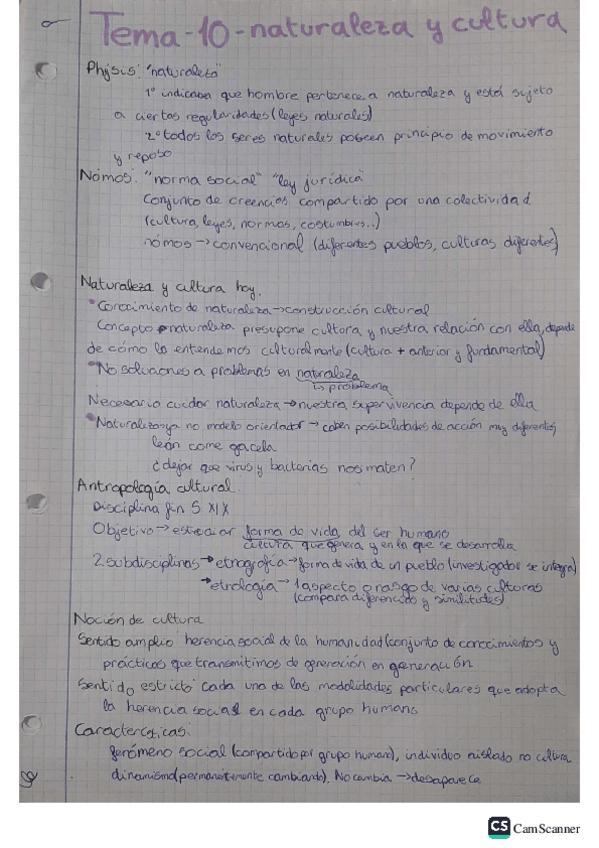 Tema-10-naturaleza y cultura
Physis: "naturaleza"
1º indicaba que hombre pertenece a naturaleza y está sujeto
a ciertas regularidades (leyes naturales)
2º todos los seres naturales poseen principio de movimiento
y reposo
Nómos: "norma social" "ley jurídica"
Conjunto de creencias compartido por una colectividad
(cultura, leyes, normas, costumbres...)
nómos → convencional (diferentes pueblos, culturas diferentes)
Naturaleza y cultura hoy.
Conocimiento de naturaleza → construcción cultural
Concepto naturaleza presupone cultura y nuestra relación con ella, depende
de cómo la entendemos culturalmente (cultura + anterior y fundamental)
No soluciones a problemas en naturaleza
↳ problema
Necesario cuidar naturaleza → nuestra supervivencia depende de ella
Naturaleza ya no modelo orientador → caben posibilidades de acción muy diferentes
león come gacela
¿dejar que virus y bacterias nos maten?
Antropología cultural.
Disciplina fin S XIX
Objetivo → estudiar forma de vida del ser humano
cultura que genera y en la que se desarrolla
2 subdisciplinas → etnografía → forma de vida de un pueblo (investigador se integra)
→ etnología → 1 aspecto o rasgo de varias culturas
(compara diferencias y similitudes)
Noción de cultura
Sentido amplio herencia social de la humanidad (conjunto de conocimientos y
prácticas que transmitimos de generación en generación
Sentido estricto cada una de las modalidades particulares que adopta
la herencia social en cada grupo humano
Características:
fenómeno social (compartido por grupo humano), individuo aislado no cultura
dinamismo (permanentemente cambiando). No cambia → desaparece
CS CamScanner